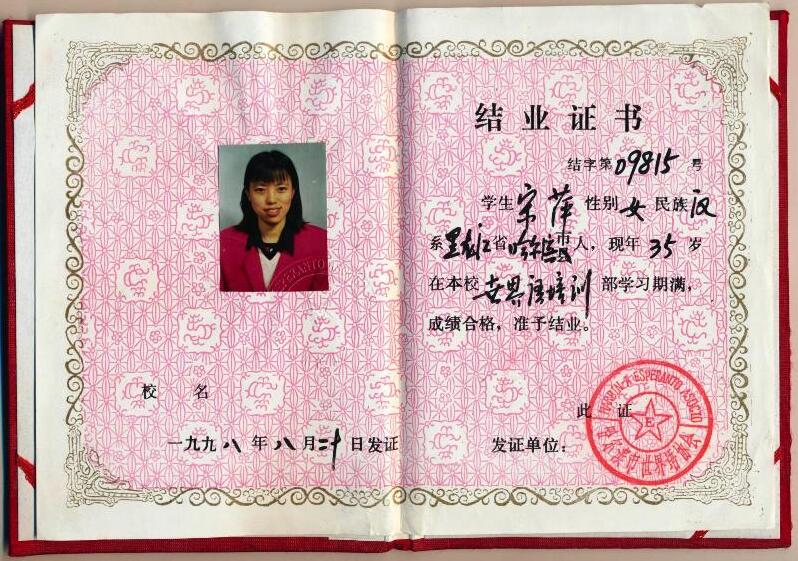 校 名
一九九八年八月二十日发证
结业证书
结字第09815号
学生宋萍性别女民族汉
系黑龙江省哈尔滨市人，现年35岁
在本校世界语培训部学习期满，
成绩合格，准予结业。
此 证
发证单位：
ESPERANTO ASOCIO
世界语协会